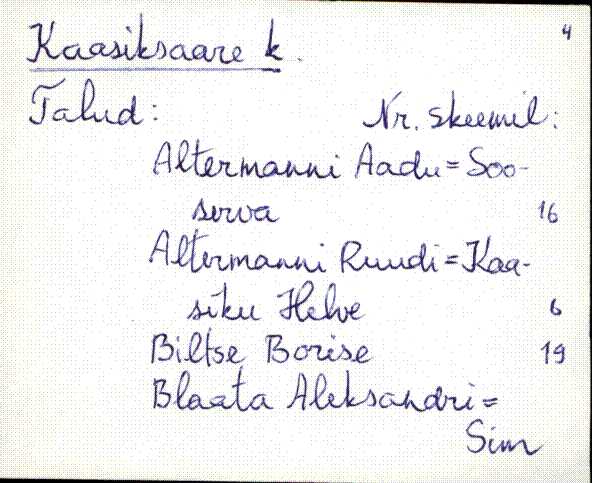 4
Kaasiksaare k.
Talud: Nr. skeemil:
Altermanni Aadu = Soo-
serva 16
Altermanni Ruudi = Kaa-
siku Helve 6
Biltse Borise 19
Blaata Aleksandri =
Sim